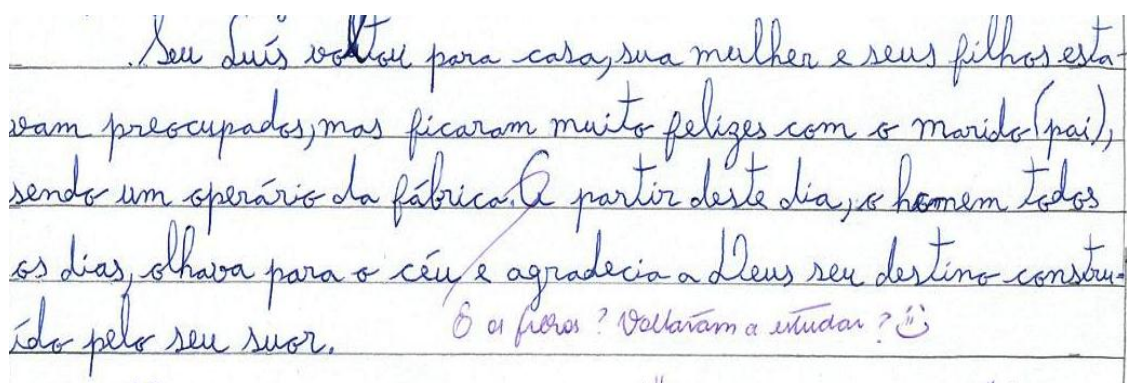 Seu Luís voltou para casa, sua mulher e seus filhos esta-
vam preocupados, mas ficaram muito felizes com o marido (pai),
sendo um operário da fábrica. A partir deste dia, o homem todos
os dias, olhava para o céu e agradecia a Deus seu destino constru-
ído pelo seu suor.
E os filhos? Voltaram a estudar?